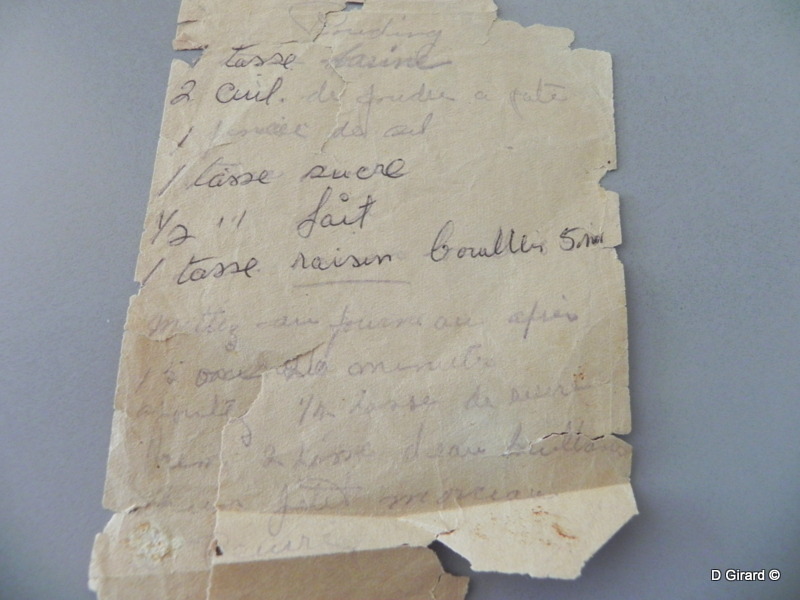 Pouding
1 tasse farine
2 cuil. de poudre a pate
1 pincée de sel
1 tasse sucre
1/2 " lait
1 tasse raisin bouillir 5 min
Mettez au fourneau après
15 ou 20 minute
ajoutez 1/2 tasse de sucre
2 tasse d'eau bouillante
petit morceau
D Girard ©